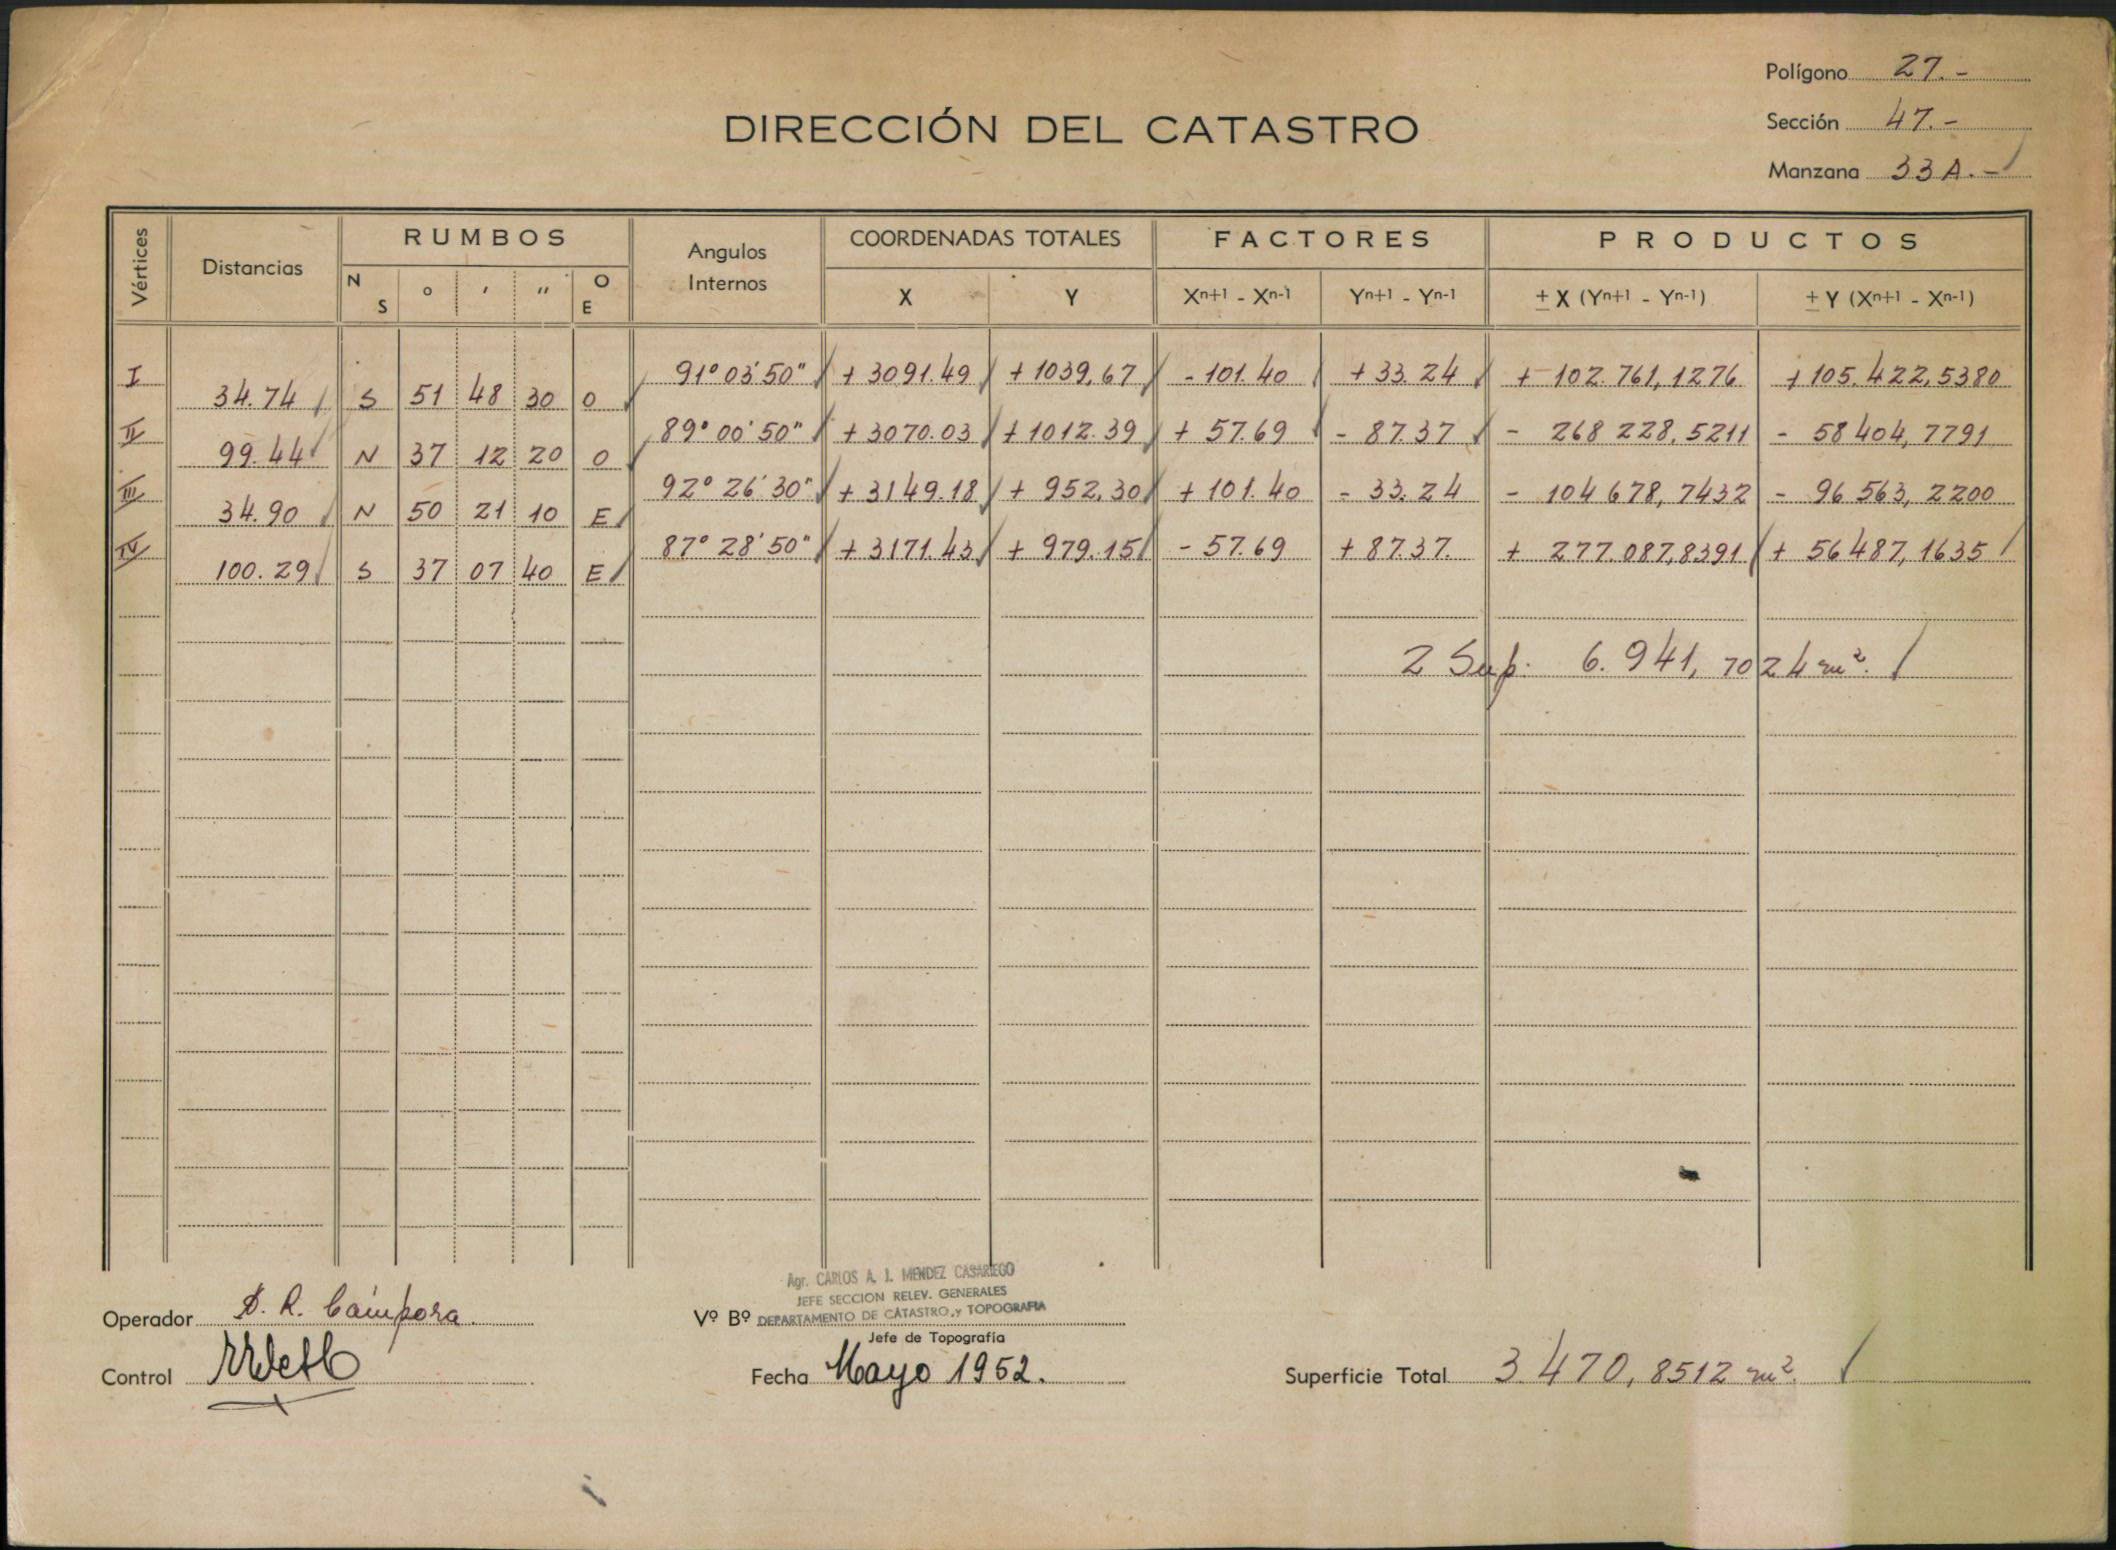 Polígono 27.-
DIRECCIÓN DEL CATASTRO
Sección 47.-
Manzana 33A.-
Vértices Distancias RUMBOS Angulos Internos COORDENADAS TOTALES FACTORES PRODUCTOS
N S o ' '' O E X Y Xn+1 - Xn-1 Yn+1 - Yn-1 ± X (Yn+1 - Yn-1) ± Y (Xn+1 - Xn-1)
I 91° 03' 50" + 3091.49 + 1039,67 - 101.40 + 33.24 + 102.761,1276 + 105.422,5380
34.74 S 51 48 30 O
II 89° 00' 50" + 3070.03 + 1012.39 + 57.69 - 87.37 - 268 228,5211 - 58 404,7791
99.44 N 37 12 20 O
III 92° 26' 30" + 3149.18 + 952,30 + 101.40 - 33.24 - 104 678,7432 - 96 563,2200
34.90 N 50 21 10 E
IV 87° 28' 50" + 3171.43 + 979.15 - 57.69 + 87.37. + 277.087,8391 + 56 487,1635
100.29 S 37 07 40 E
2 Sup. 6.941,7024 m².
Agr. CARLOS A. J. MENDEZ CASARIEGO
JEFE SECCION RELEV. GENERALES
Operador D. R. Cámpora. Vº Bº DEPARTAMENTO DE CATASTRO y TOPOGRAFIA
Jefe de Topografía
Control Fecha Mayo 1952. Superficie Total 3.470,8512 m².